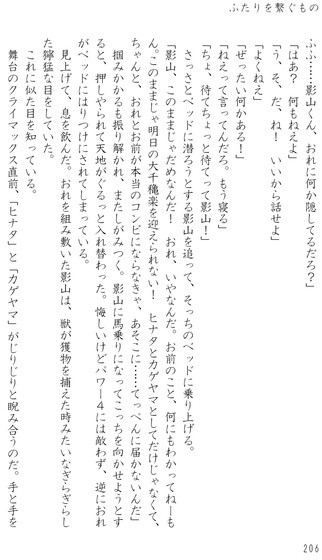 ふたりを繋ぐもの
ふふ……影山くん、おれに何か隠してるだろ？」
「はあ？　何もねえよ」
「う、そ、だ、ね！　いいから話せよ」
「よくねえ」
「ぜったい何かある！」
「ねえって言ってんだろ。もう寝る」
「ちょ、待てちょっと待てって影山！」
さっさとベッドに潜ろうとする影山を追って、そっちのベッドに乗り上げる。
「影山、このままじゃだめなんだ！　おれ、いやなんだ。お前のこと、何にもわかってねーも
ん。このままじゃ明日の大千穐楽を迎えられない！　ヒナタとカゲヤマとしてだけじゃなくて、
ちゃんと、おれとお前が本当のコンビにならなきゃ、あそこに……てっぺんに届かないんだ」
掴みかかるも振り解かれ、またしがみつく。影山に馬乗りになってこっちを向かせようとす
ると、押しやられて天地がぐるっと入れ替わった。悔しいけどパワー４には敵わず、逆におれ
がベッドにはりつけにされてしまっている。
見上げて、息を飲んだ。おれを組み敷いた影山は、獣が獲物を捕えた時みたいなぎらぎらし
た獰猛な目をしていた。
これに似た目を知っている。
舞台のクライマックス直前、「ヒナタ」と「カゲヤマ」がじりじりと睨み合うのだ。手と手を
206